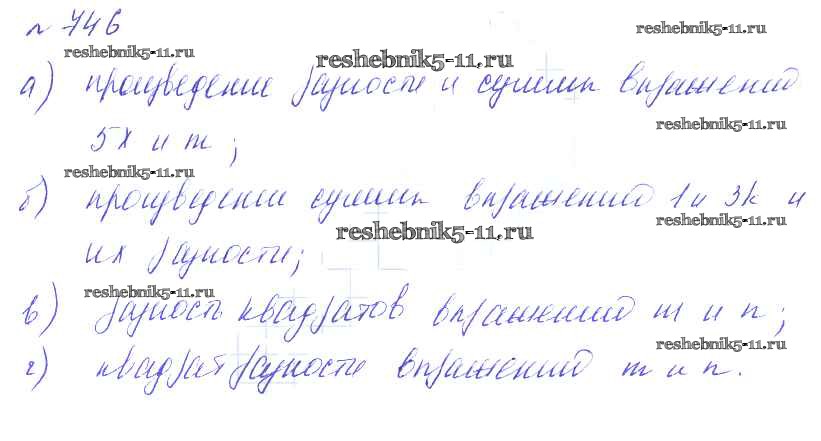 № 746
reshebnik5-11.ru
reshebnik5-11.ru
reshebnik5-11.ru
а) произведение разности и суммы выражений
reshebnik5-11.ru
5x и m;
reshebnik5-11.ru
б) произведение суммы выражений 1 и 3k и
reshebnik5-11.ru
reshebnik5-11.ru
их разности;
reshebnik5-11.ru
в) разность квадратов выражений m и n;
reshebnik5-11.ru
г) квадрат разности выражений m и n.